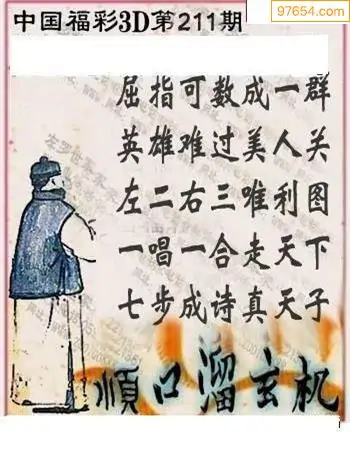 97654.com
中国福彩3D第211期
屈指可数成一群
英雄难过美人关
左二右三唯利图
一唱一合走天下
七步成诗真天子
順口溜玄机